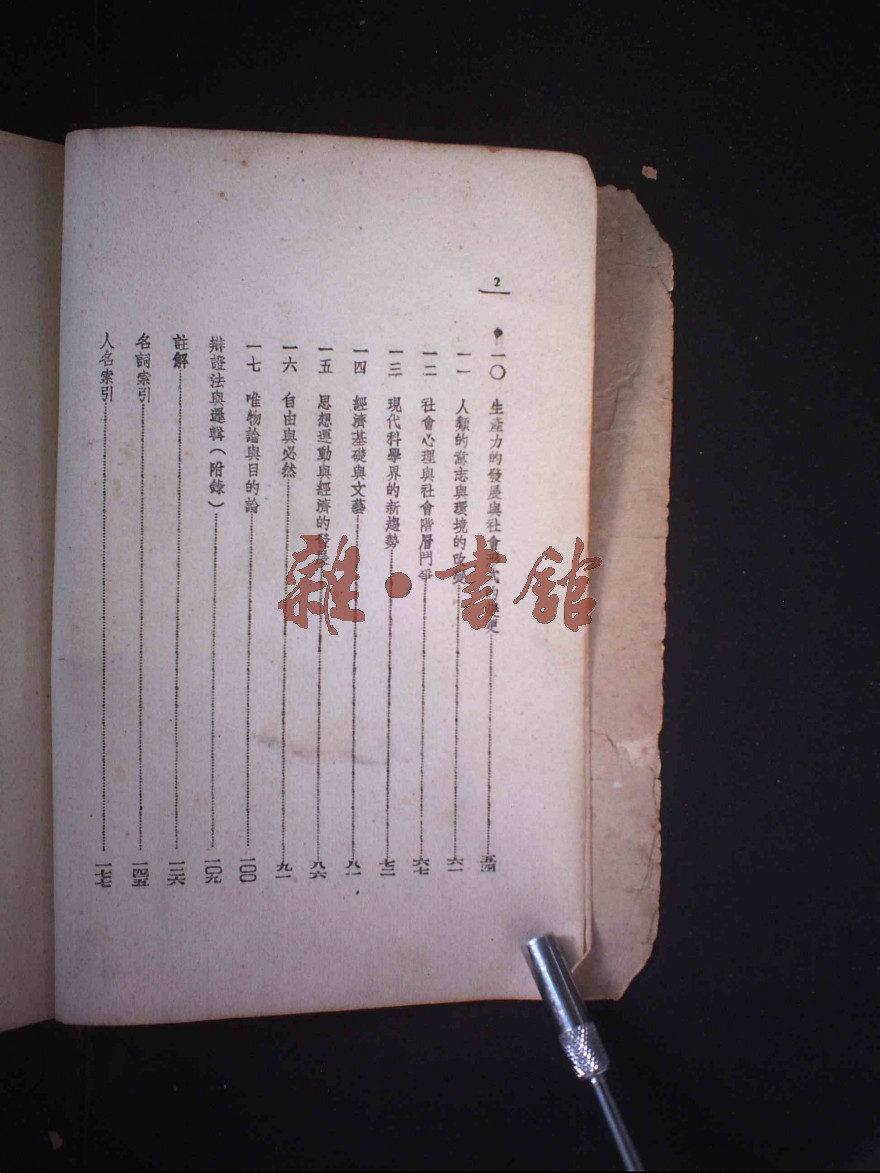 2
一〇 生產力的發展與社會 式的 更……五四
一一 人類的意志與環境的改變……六一
一二 社會心理與社會階層鬥爭……六七
一三 現代科學界的新趨勢……七二
一四 經濟基礎與文藝……八一
一五 思想運動與經濟的發展……八六
一六 自由與必然……九一
一七 唯物論與目的論……一〇〇
辯證法與邏輯(附錄)……一〇九
註解……一二六
名詞索引……一四五
人名索引……一七七
雜·書館